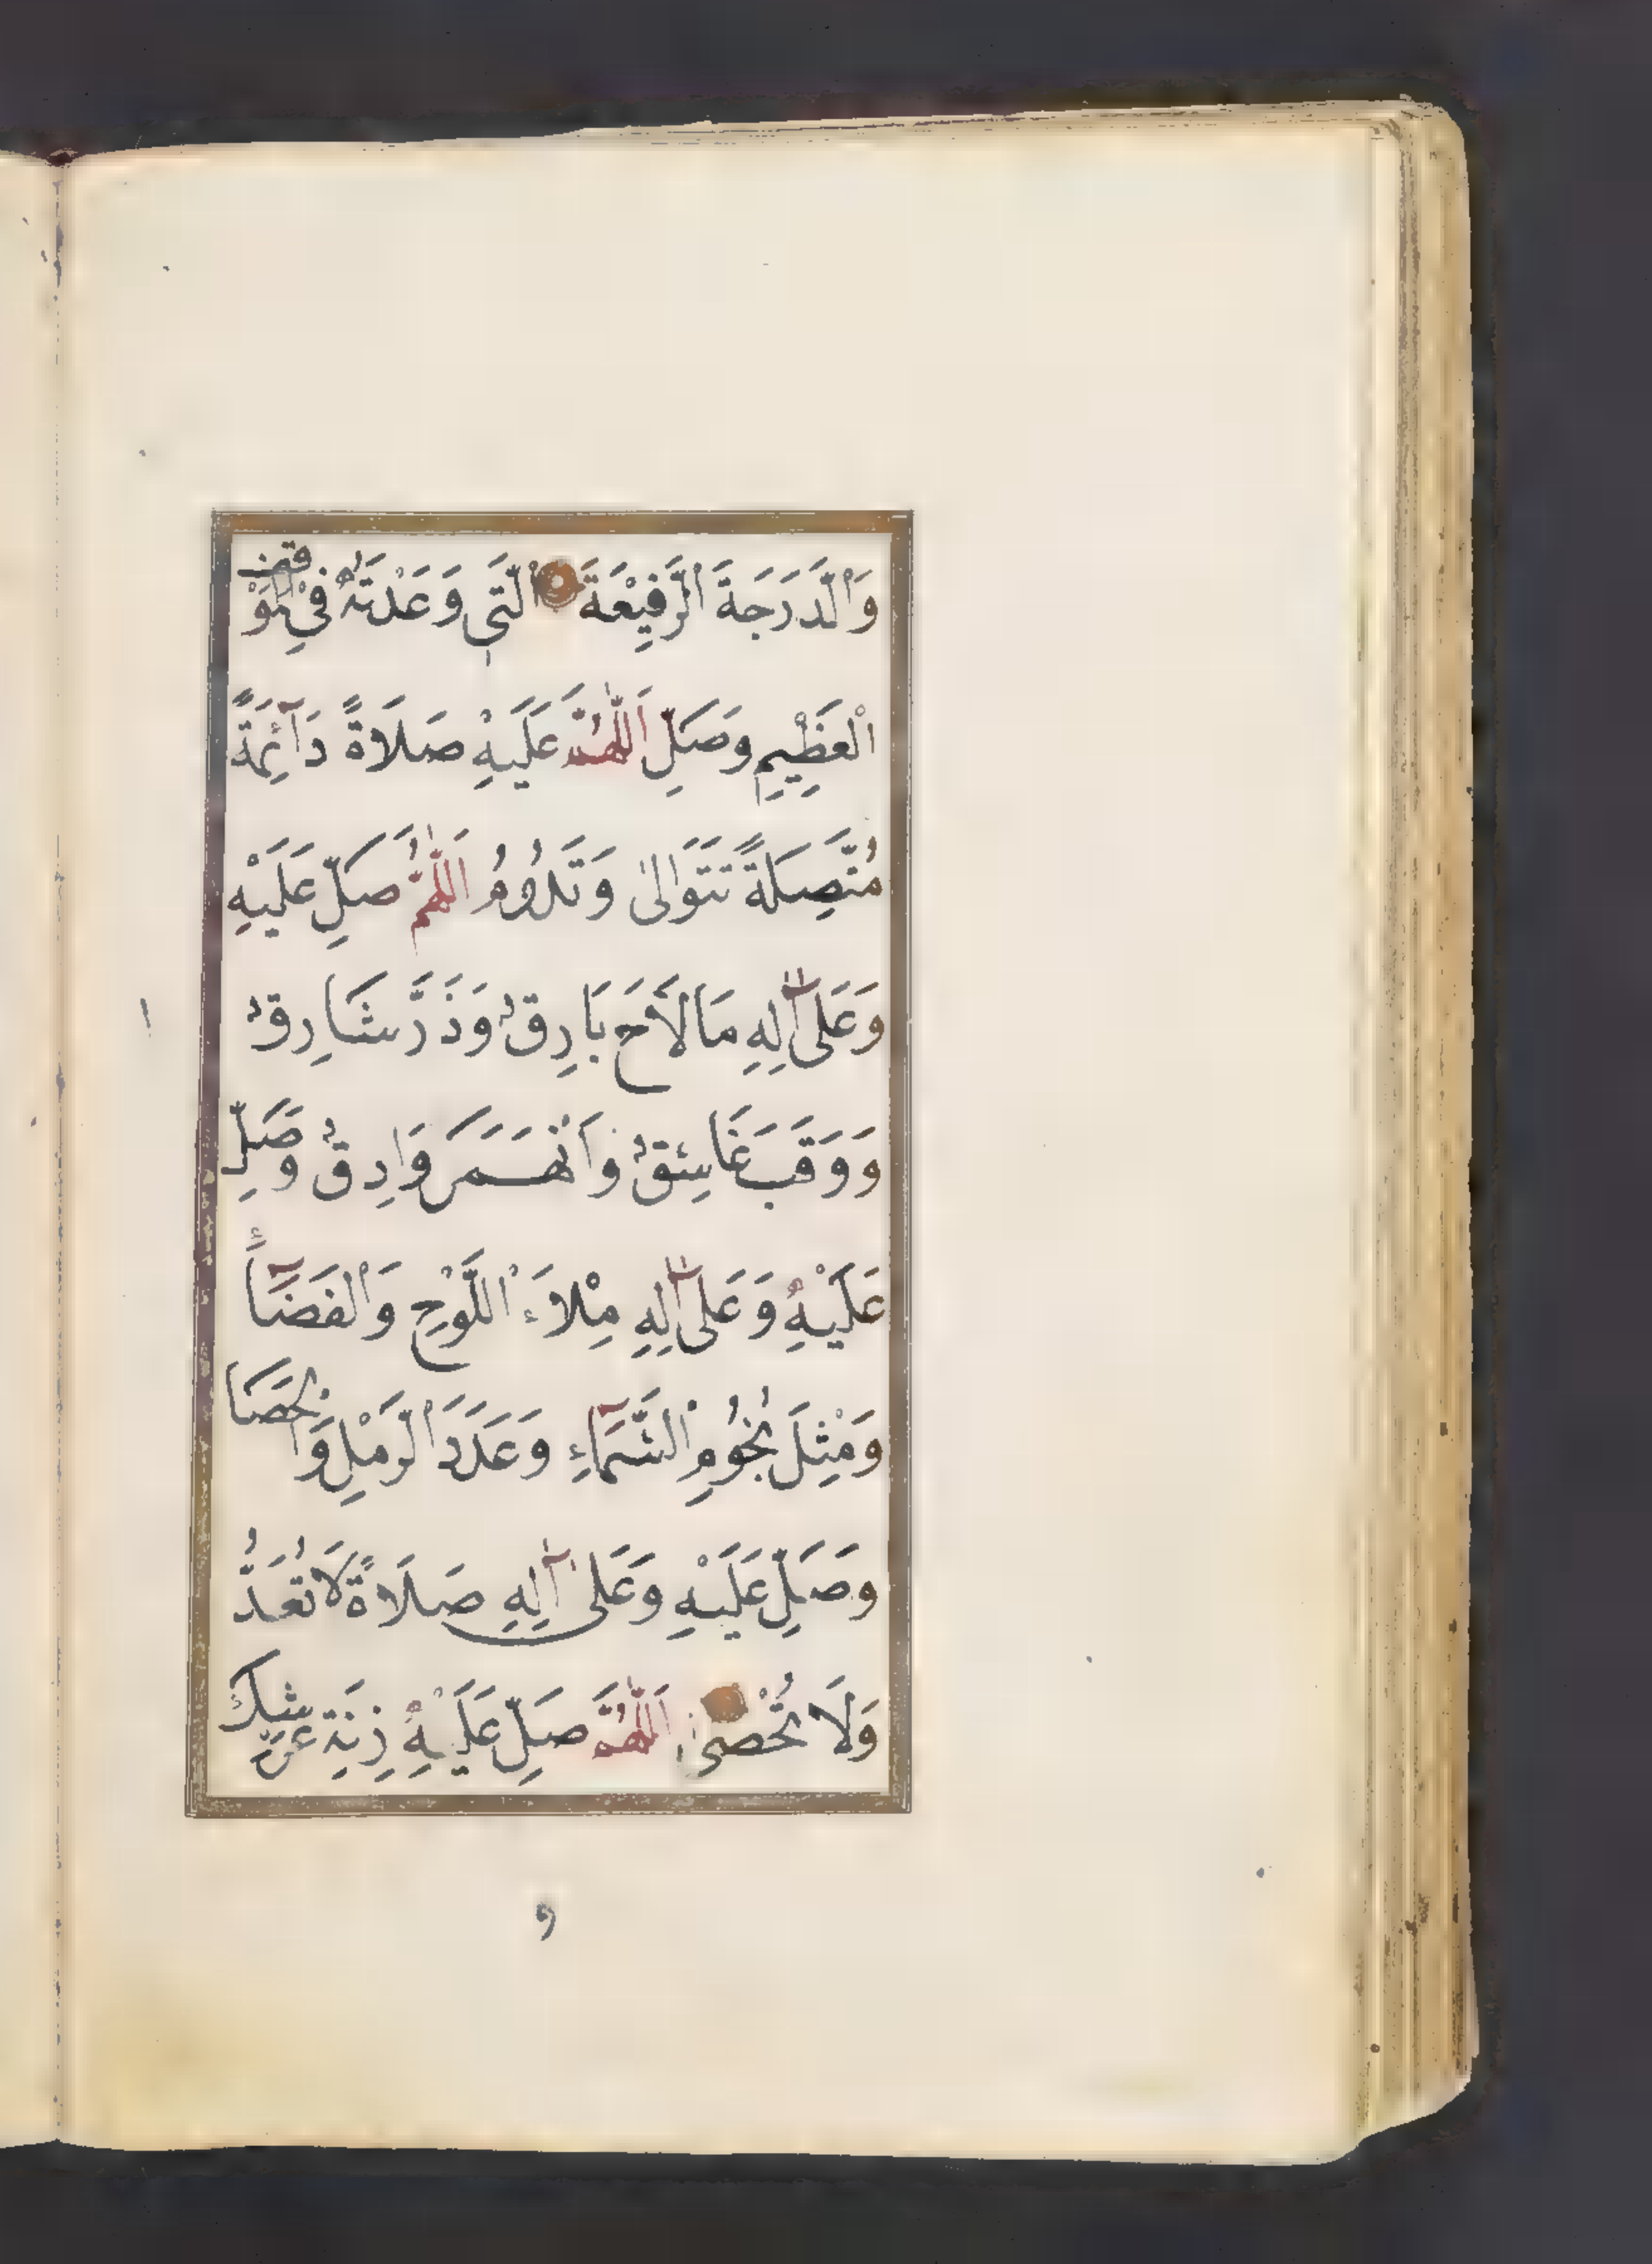 وَالدَّرَجَةَ الرَّفِيْعَةَ الَّتِي وَعَدْتَهُ فِي الْمَوْقِفِ
الْعَظِيْمِ وَصَلِّ اَللّٰهُمَّ عَلَيْهِ صَلَاةً دَآئِمَةً
مُتَّصِلَةً تَتَوَالىٰ وَتَدُوْمُ اَللّٰهُمَّ صَلِّ عَلَيْهِ
وَعَلىٰٓ اٰلِهِ مَا لَاحَ بَارِقٌ وَذَرَّ شَارِقٌ
وَوَقَبَ غَاسِقٌ وَانْهَمَرَ وَادِقٌ وَصَلِّ
عَلَيْهِ وَعَلىٰٓ اٰلِهِ مِلْاَءَ اللَّوْحِ وَالْفَضَآءِ
وَمِثْلَ نُجُوْمِ السَّمَآءِ وَعَدَدَ الرَّمْلِ وَالْحَصَا
وَصَلِّ عَلَيْهِ وَعَلىٰٓ اٰلِهِ صَلَاةً لَا تُعَدُّ
وَلَا تُحْصىٰ اَللّٰهُمَّ صَلِّ عَلَيْهِ زِنَةَ عَرْشِكَ
و